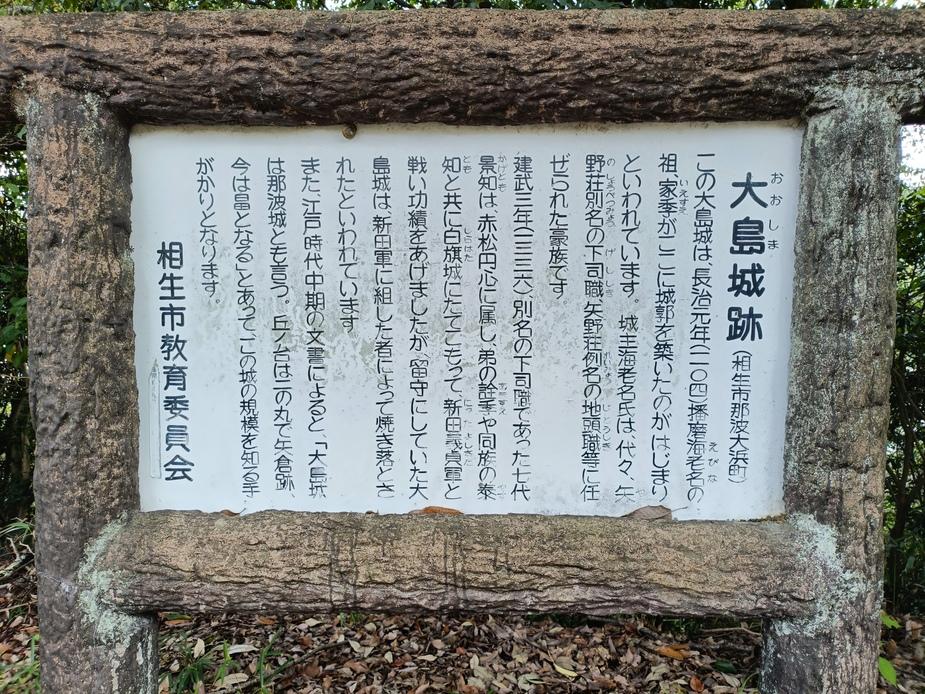 大島城跡(相生市那波大浜町)
この大島城は、長治元年(一一〇四)播磨海老名の
祖、家季が、ここに城郭を築いたのが、はじまり
といわれています。 城主海老名氏は、代々、矢
野荘別名の下司職、矢野荘例名の地頭職等に任
ぜられた豪族です。
建武三年(一三三六)別名の下司職であった七代
景知は、赤松円心に属し、弟の詮季や同族の泰
知と共に白旗城にたてこもって、新田義貞軍と
戦い功績をあげましたが、留守にしていた大
島城は、新田軍に組した者によって焼き落とさ
れたといわれています
また、江戸時代中期の文書によると、「大島城
は那波城とも言う。丘ノ台は三の丸で矢倉跡、
今は畠となる」とあって、この城の規模を知る手
がかりとなります。
相生市教育委員会